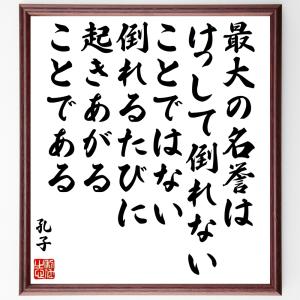 最大の名誉は
けっして倒れない
ことではない
倒れるたびに
起きあがる
ことである
孔子